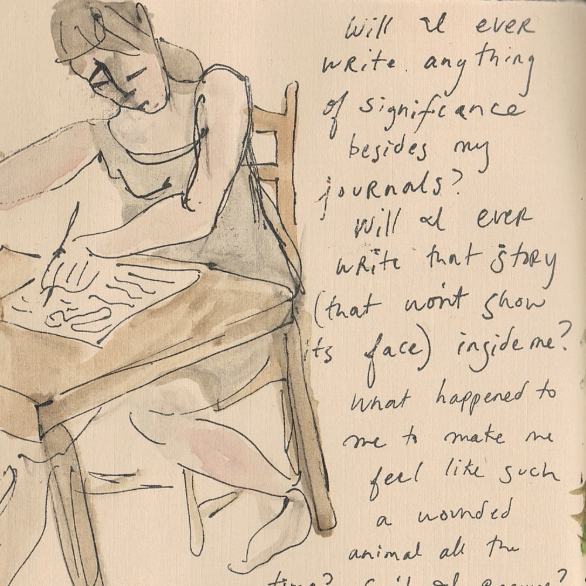 Will I ever
write anything
of significance
besides my
journals?
Will I ever
write that story
(that won't show
its face) inside me?
What happened to
me to make me
feel like such
a wounded
animal all the
time?